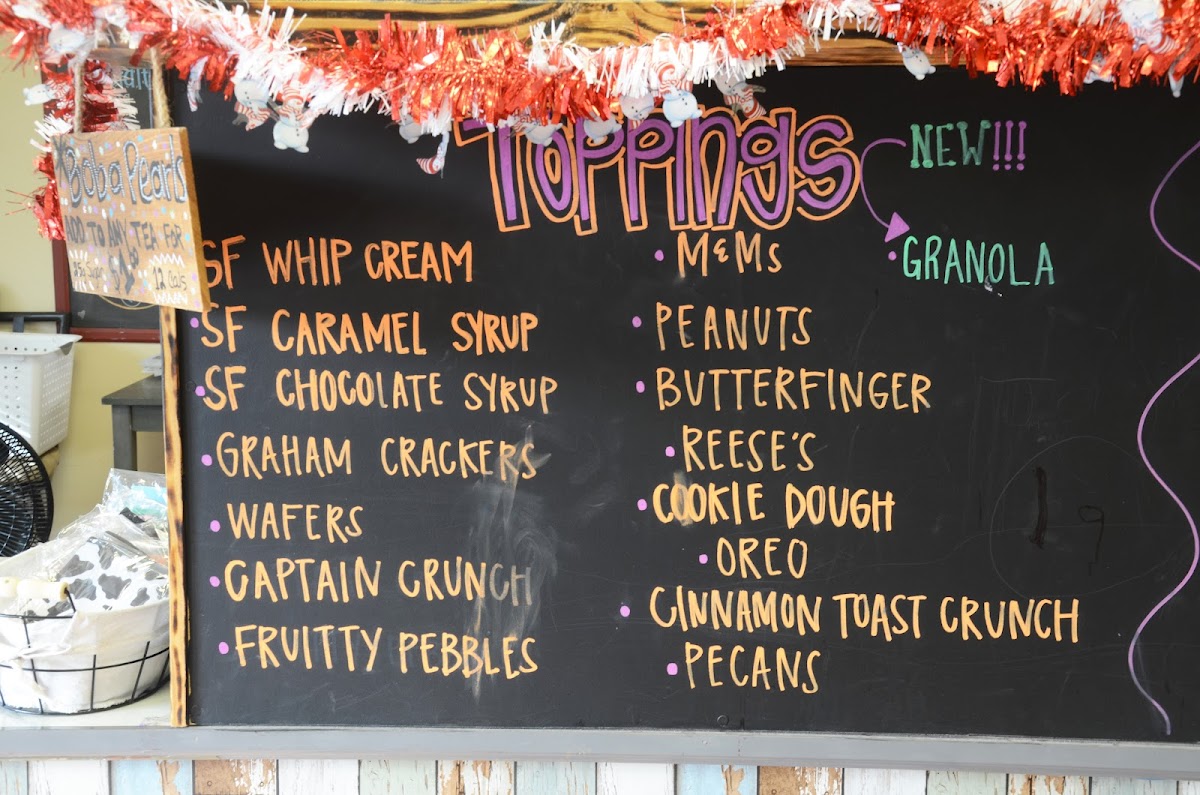 Toppings
NEW!!!
Boba Pearls
ADD TO ANY TEA FOR
12 Cals
SF WHIP CREAM
SF CARAMEL SYRUP
SF CHOCOLATE SYRUP
GRAHAM CRACKERS
WAFERS
CAPTAIN CRUNCH
FRUITTY PEBBLES
M&Ms
PEANUTS
BUTTERFINGER
REESE'S
COOKIE DOUGH
OREO
CINNAMON TOAST CRUNCH
PECANS
GRANOLA